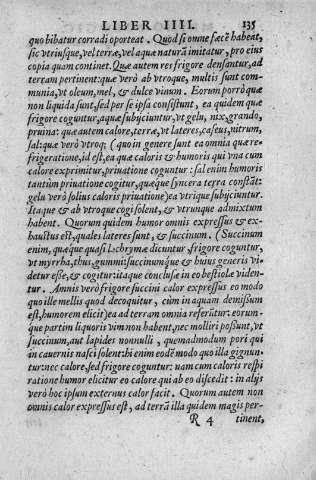 LIBER IIII. 135
quo bibatur corradi oporteat. Quod si omne fæcē habeat,
sic vtriusque, vel terræ, vel aquæ naturā imitatur, pro eius
copia quam continet. Quæ autem res frigore densantur, ad
terram pertinent: quæ verò ab vtroque, multis sunt com-
munia, vt oleum, mel, & dulce vinum. Eorum porrò quæ
non liquida sunt, sed per se ipsa consistunt, ea quidem quæ
frigore coguntur, aquæ subijciuntur, vt gelu, nix, grando,
pruina: quæ autem calore, terræ, vt lateres, caseus, nitrum,
sal: quæ verò vtroq; (quo in genere sunt ea omnia quæ re-
frigeratione, id est, ea quæ caloris & humoris qui vna cum
calore exprimitur, priuatione coguntur: sal enim humoris
tantùm priuatione cogitur, quæque syncera terra constāt:
gelu verò solius caloris priuatione) ea vtrique subijciuntur.
Itaque & ab vtroque cogi solent, & vtrunque admixtum
habent. Quorum quidem humor omnis expressus & ex-
haustus est, quales lateres sunt, & succinum. (Succinum
enim, quæque quasi Lachrymæ dicuntur, frigore coguntur,
vt myrrha, thus, gummi: succinumque & huius generis vi-
detur esse, & cogitur: itaque conclusæ in eo bestiolæ viden-
tur. Amnis verò frigore succini calor expressus eo modo
quo ille mellis quod decoquitur, cùm in aquam demissum
est, humorem elicit) ea ad terram omnia referūtur: eorum-
que partim liquoris vim non habent, nec molliri possunt, vt
succinum, aut lapides nonnulli, quemadmodum pori qui
in cauernis nasci solent: hi enim eodē modo quo illa gignun-
tur: nec calore, sed frigore coguntur: nam cum caloris respi
ratione humor elicitur eo calore qui ab eo discedit: in alijs
verò hoc ipsum externus calor facit. Quorum autem non
omnis calor expressus est, ad terrā illa quidem magis per-
R 4 tinent,